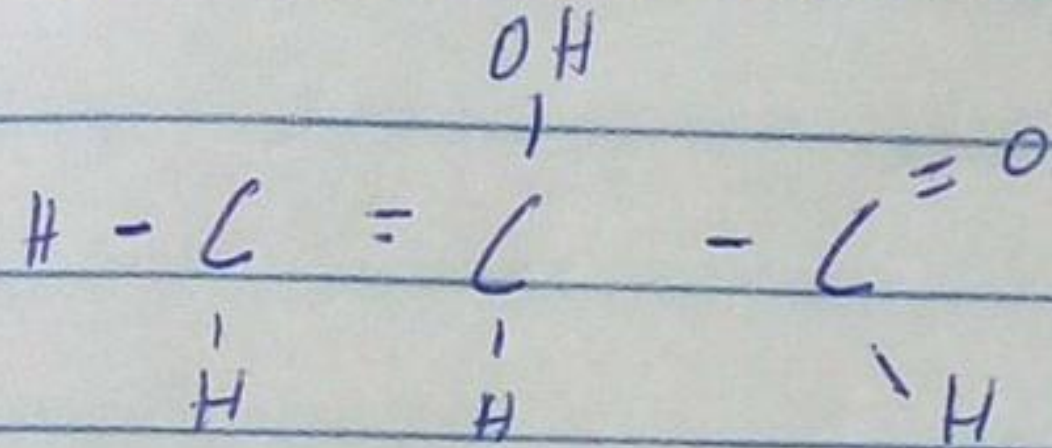 OH
H - C = C - C = O
H H H